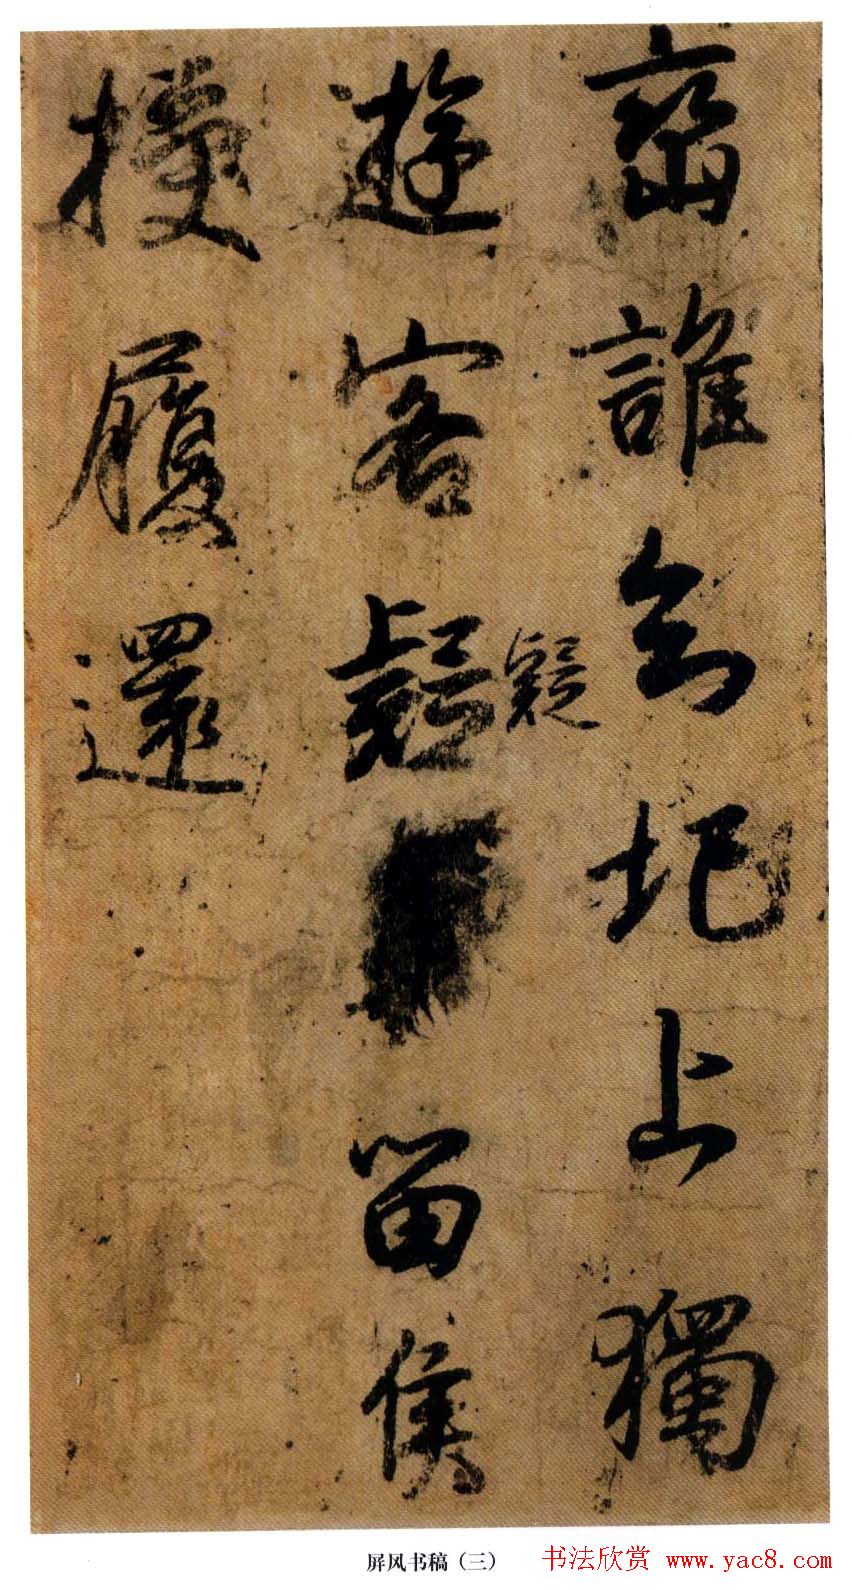 峦誰知圯上獨
遊客疑留侯
疑
履還
屏风书稿（三）
书法欣赏 www.yac8.com